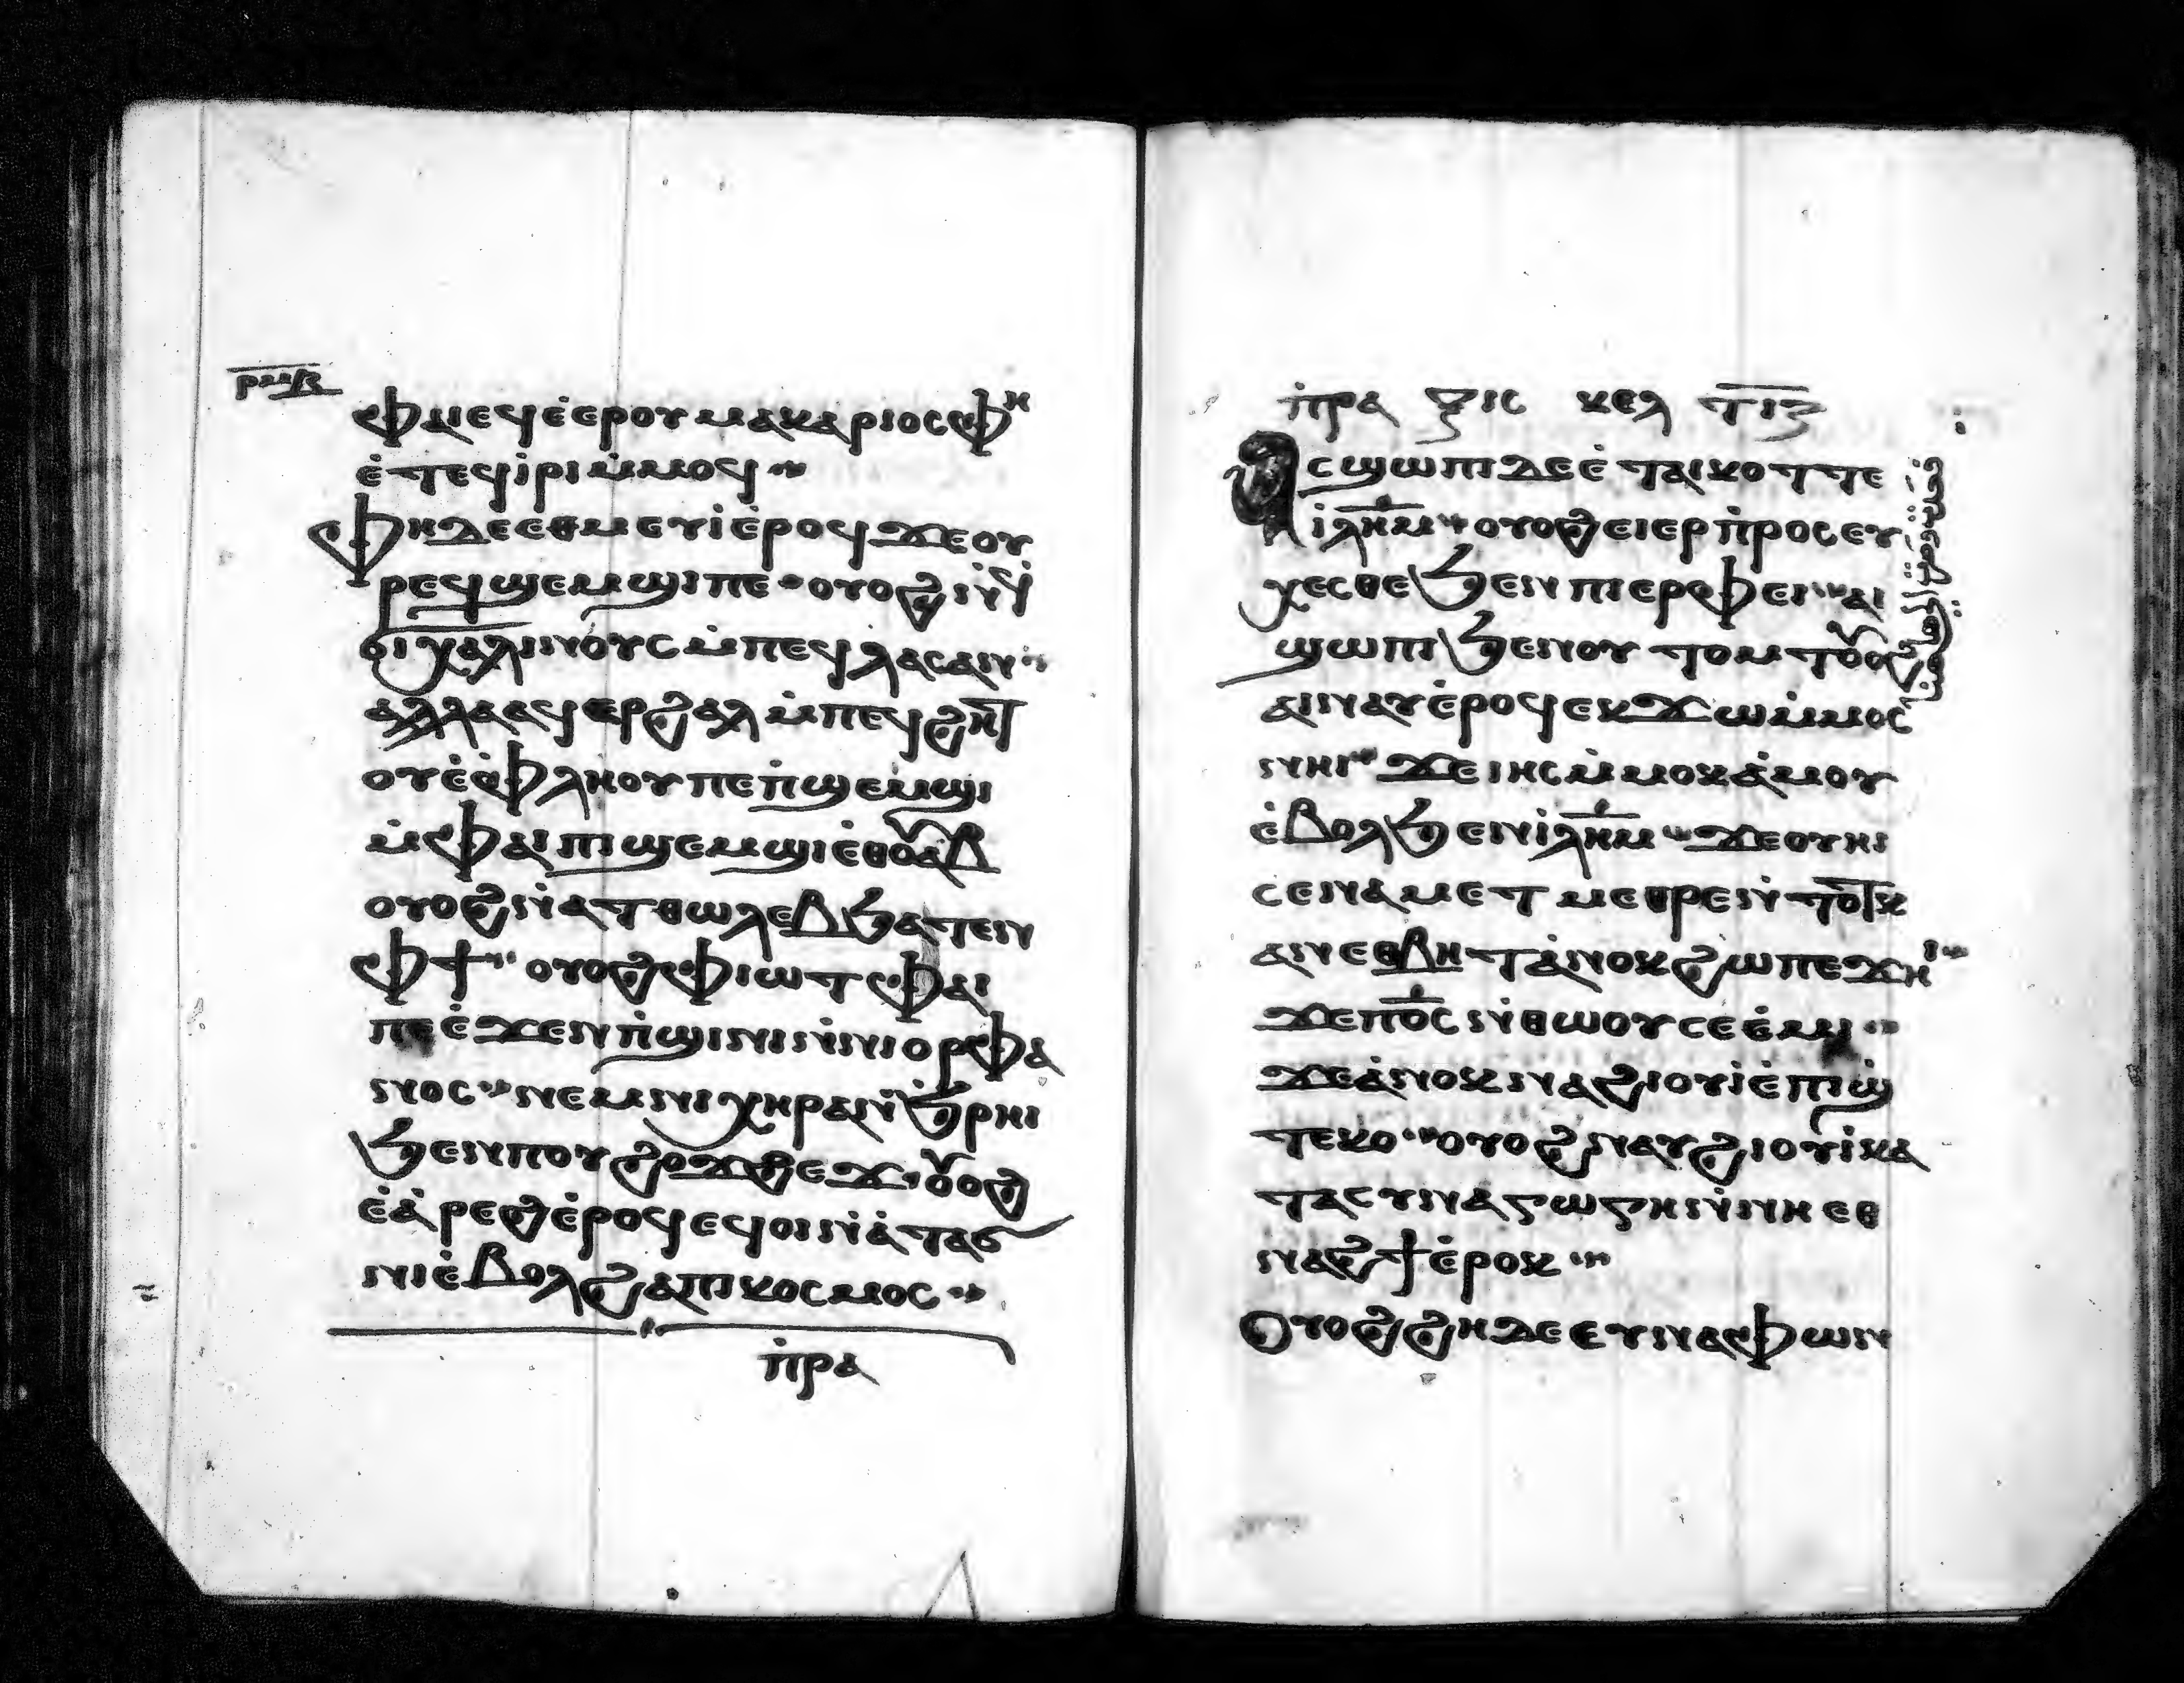 ⲣⲙⲃ
ⲫⲙⲉϥⲉ̇ⲉⲣⲟⲩⲙⲁⲕⲁⲣⲓⲟⲥⲫⲏ
ⲉ̇ⲧⲉϥⲓ̇ⲣⲓⲙ̇ⲙⲟϥ
ⲫⲏⲇⲉⲉⲑⲙⲉⲩⲓ̇ⲉ̇ⲣⲟϥϫⲉⲟⲩ
ⲣⲉϥϣⲉⲙϣⲓⲡⲉ ⲟⲩⲟϩⲛ̇ϥ̇
ⲟⲓⲭⲁⲗⲓⲛⲟⲩⲥⲙ̇ⲡⲉϥⲗⲁⲥⲁⲛ
ⲁⲗⲗⲁⲁϥⲉⲣϩⲁⲗⲙ̇ⲡⲉϥϩⲏⲧ
ⲟⲩⲉ̇ⲫⲗⲏⲟⲩⲡⲉⲡ̇ϣⲉⲙϣⲓ
ⲙ̇ⲫⲁⲓⲡⲓϣⲉⲙϣⲓⲉ̇ⲑⲟⲩⲁⲃ
ⲟⲩⲟϩⲛ̇ⲁⲧⲑⲱⲗⲉⲃϧⲁⲧⲉⲛ
ⲫϯ ⲟⲩⲟϩⲫⲓⲱⲧⲫⲁⲓ
ⲡⲉⲉ̇ϫⲉⲛⲡ̇ϣⲓⲛⲓⲛ̇ⲛⲓⲟⲣⲫⲁ
ⲛⲟⲥ ⲛⲉⲙⲛⲓⲭⲏⲣⲁⲛ̇ϧ̇ⲣⲏⲓ
ϧⲉⲛⲡⲟⲩϩⲟϫϩⲉϫ ⲟⲩⲟϩ
ⲉ̇ⲁ̇ⲣⲉϩⲉ̇ⲣⲟϥⲉϥⲟⲓⲛ̇ⲁ̇ⲧⲁϭ
ⲛⲓⲉ̇ⲃⲟⲗϩⲁⲡⲓⲕⲟⲥⲙⲟⲥ
ⲡ̇ⲣⲁ
ⲡ̇ⲣⲁ ⲝⲓⲥ ⲕⲉⲗ ⲧⲓⲍ
ⲁⲥϣⲱⲡⲓⲇⲉⲉ̇ⲧⲁⲓⲕⲟⲧⲧⲉ
ⲓ̇ⲗⲏⲙ ⲟⲩⲟϩⲉⲓⲉⲣⲡ̇ⲣⲟⲥⲉⲩ
ⲭⲉⲥⲑⲉϧⲉⲛⲡⲓⲉⲣⲫⲉⲓ ⲁⲓ
ϣⲱⲡⲓϧⲉⲛⲟⲩⲧⲟⲙⲧⲟⲩⲟϩ
ⲁⲓⲛⲁⲩⲉ̇ⲣⲟϥⲉⲕϫⲱⲙ̇ⲙⲟⲥ
ⲛⲏⲓ ϫⲉⲓⲏⲥⲙ̇ⲙⲟⲕⲁ̇ⲙⲟⲩ
ⲉ̇ⲃⲟⲗϧⲉⲛⲓ̇ⲗⲏⲙ ϫⲉⲟⲩⲏⲓ
ⲥⲉⲛⲁⲙⲉⲧⲙⲉⲑⲣⲉⲛ̇ⲧⲟⲧⲕ
ⲁⲛⲉⲑⲃⲏⲧⲁ̇ⲛⲟⲕϩⲱⲡⲉϫⲏⲓ
ϫⲉⲡⲟ̅ⲥ̅ⲛ̇ⲑⲱⲟⲩⲥⲉⲉ̇ⲙⲓ
ϫⲉⲁ̇ⲛⲟⲕⲛⲁϩⲓⲟⲩⲓ̇ⲉ̇ⲡⲓϣ
ⲧⲉⲕⲟ ⲟⲩⲟϩⲛⲁⲩϩⲓⲟⲩⲓ̇ⲕⲁ
ⲧⲁⲥⲩⲛⲁⲅⲱⲅⲏⲛ̇ⲛⲏⲉⲑ
ⲛⲁϩϯⲉ̇ⲣⲟⲕ
ⲟⲩⲟϩϩⲏⲇⲉⲉⲩⲛⲁⲫⲱⲛ